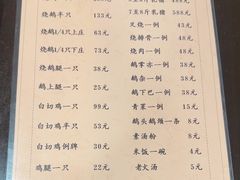 烧鹅半只 133元
烧鹅1/4只上庄 83元
烧鹅1/4只下庄 73元
烧鹅腿一只 38元
鹅上腿一只 25元
白切鸡一只 99元
白切鸡半只 53元
白切鸡例牌 30元
鸡腿一只 22元
7至8斤乳猪 488元
叉烧一例 48元
烧排骨一例 48元
烧肉一例
鹅掌亦一例
鹅杂一例
鹅下巴一例
青菜一例 15元
鹅头鹅颈一条 8元
素汤粉 8元
米饭一碗 4元
老火汤 5元